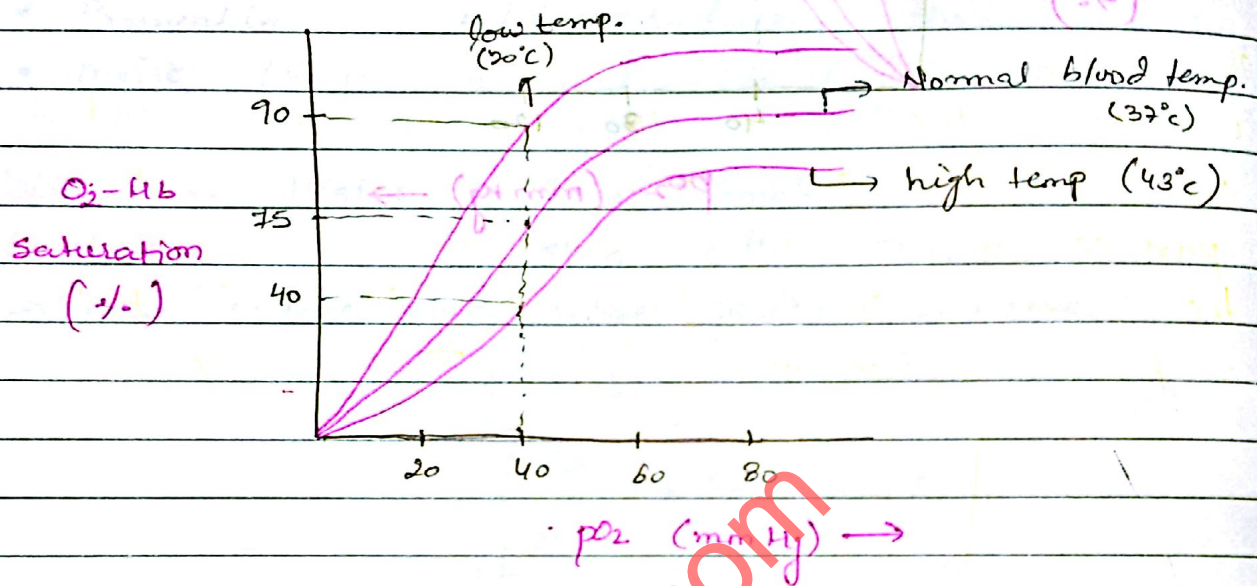 low temp.
(20°C)
Normal blood temp.
(37°C)
90
high temp (43°C)
O₂-Hb
75
saturation
40
(%)
20 40 60 80
pO₂ (mmHg) →
om